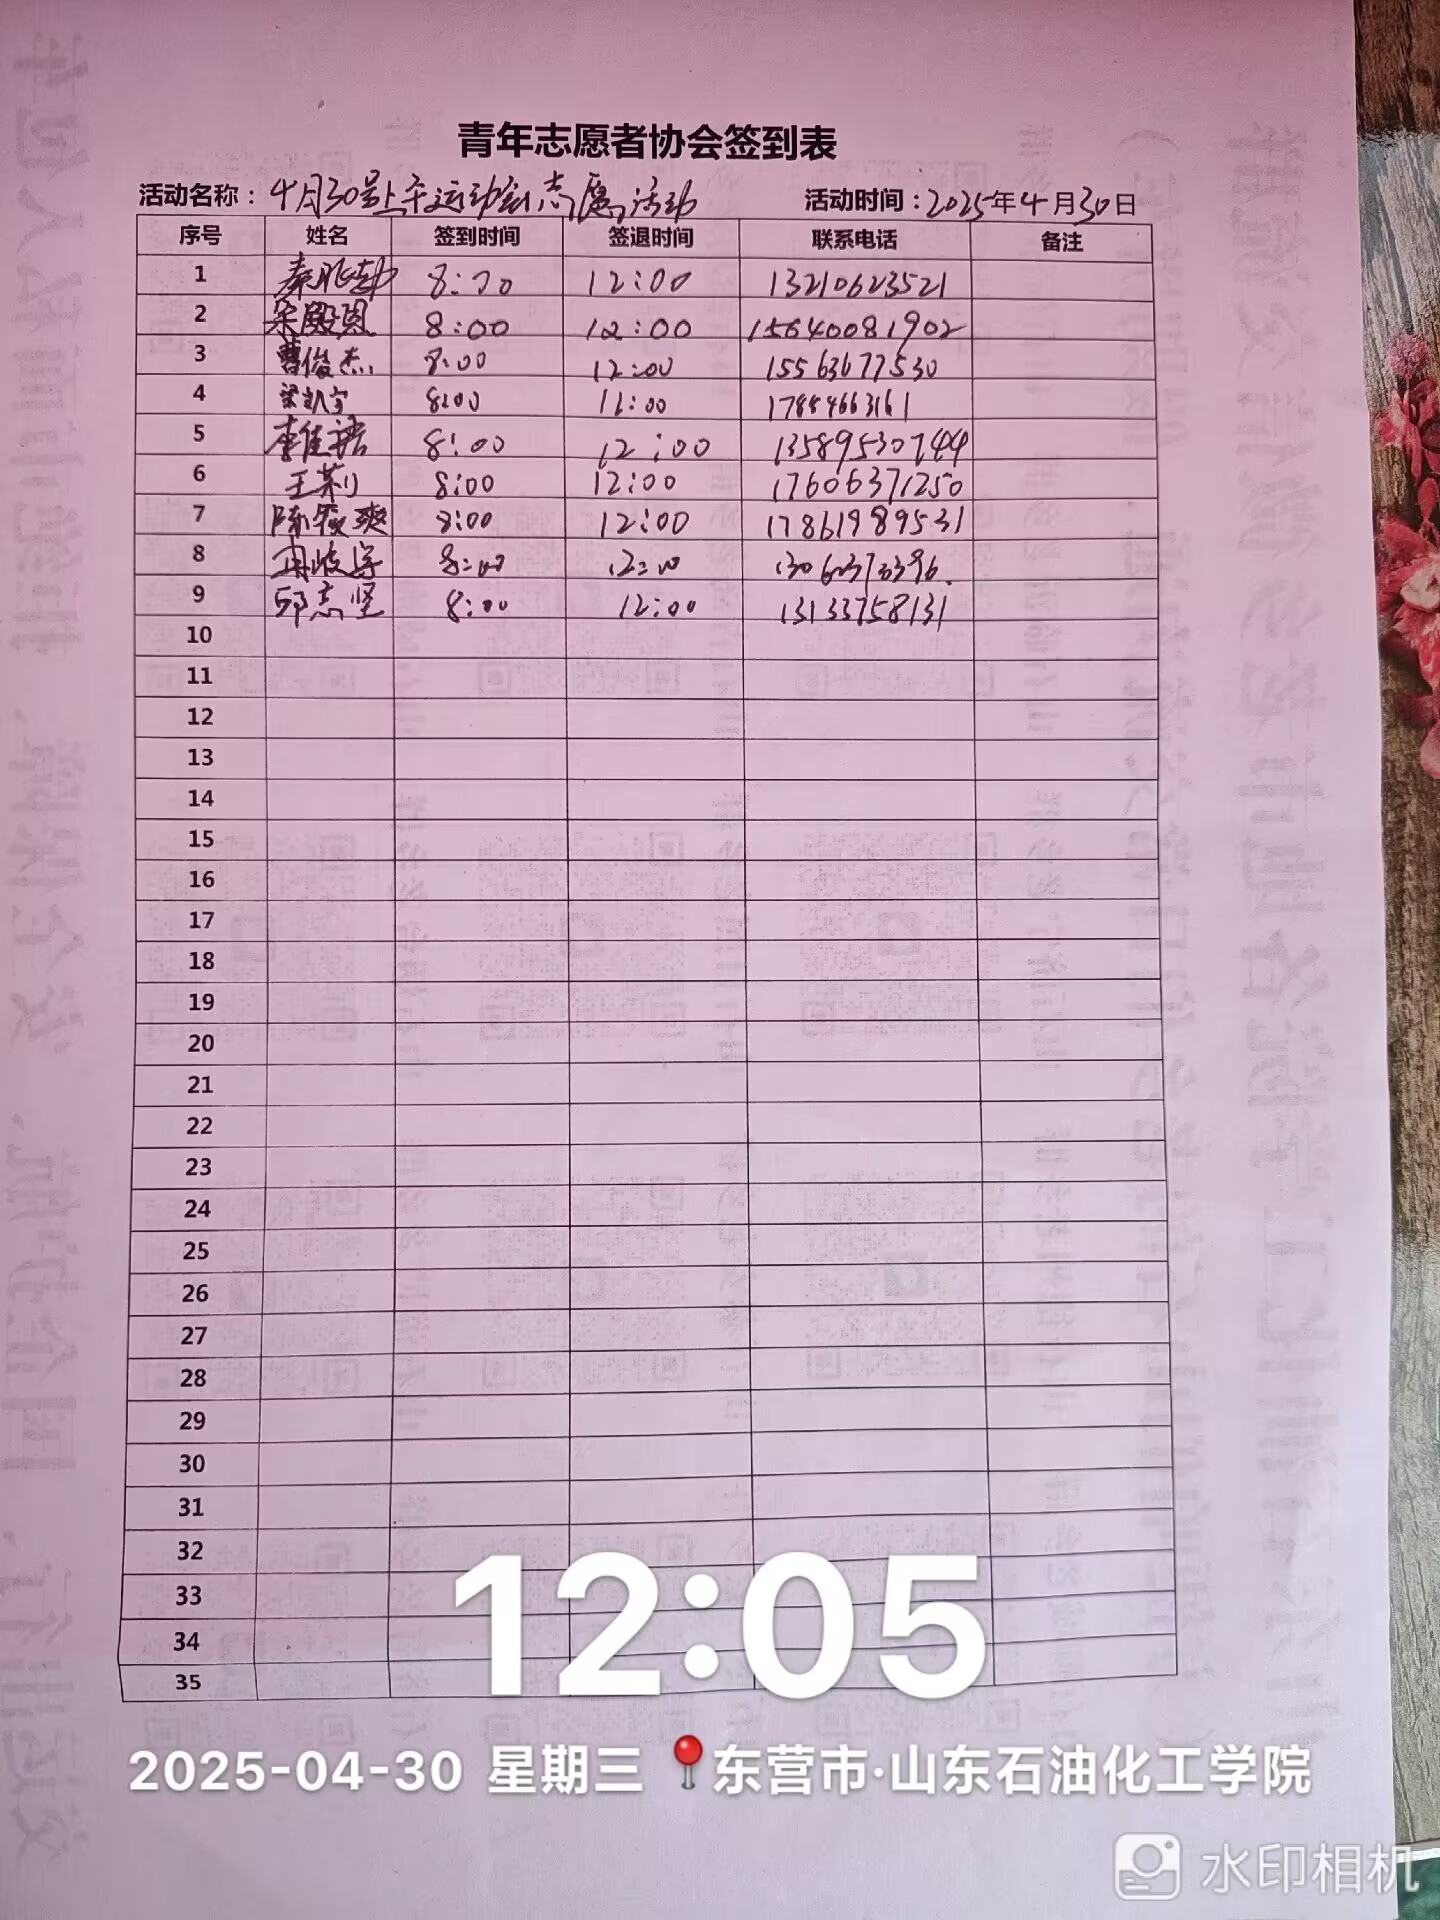 青年志愿者协会签到表
活动名称：4月30号上午运动会志愿活动 活动时间：2025年4月30日
序号 姓名 签到时间 签退时间 联系电话 备注
1 8:00 12:00 13210623521
2 8:00 12:00 15640081902
3 曹俊杰 8:00 12:00 15563677530
4 8:00 11:00 17854663161
5 李佳诺 8:00 12:00 13589530744
6 王莉 8:00 12:00 17606371250
7 8:00 12:00 17861989531
8 8:00 12:00
9 邱志坚 8:00 12:00 13133758131
10
11
12
13
14
15
16
17
18
19
20
21
22
23
24
25
26
27
28
29
30
31
32
33
34
35
12:05
2025-04-30 星期三 东营市·山东石油化工学院
水印相机